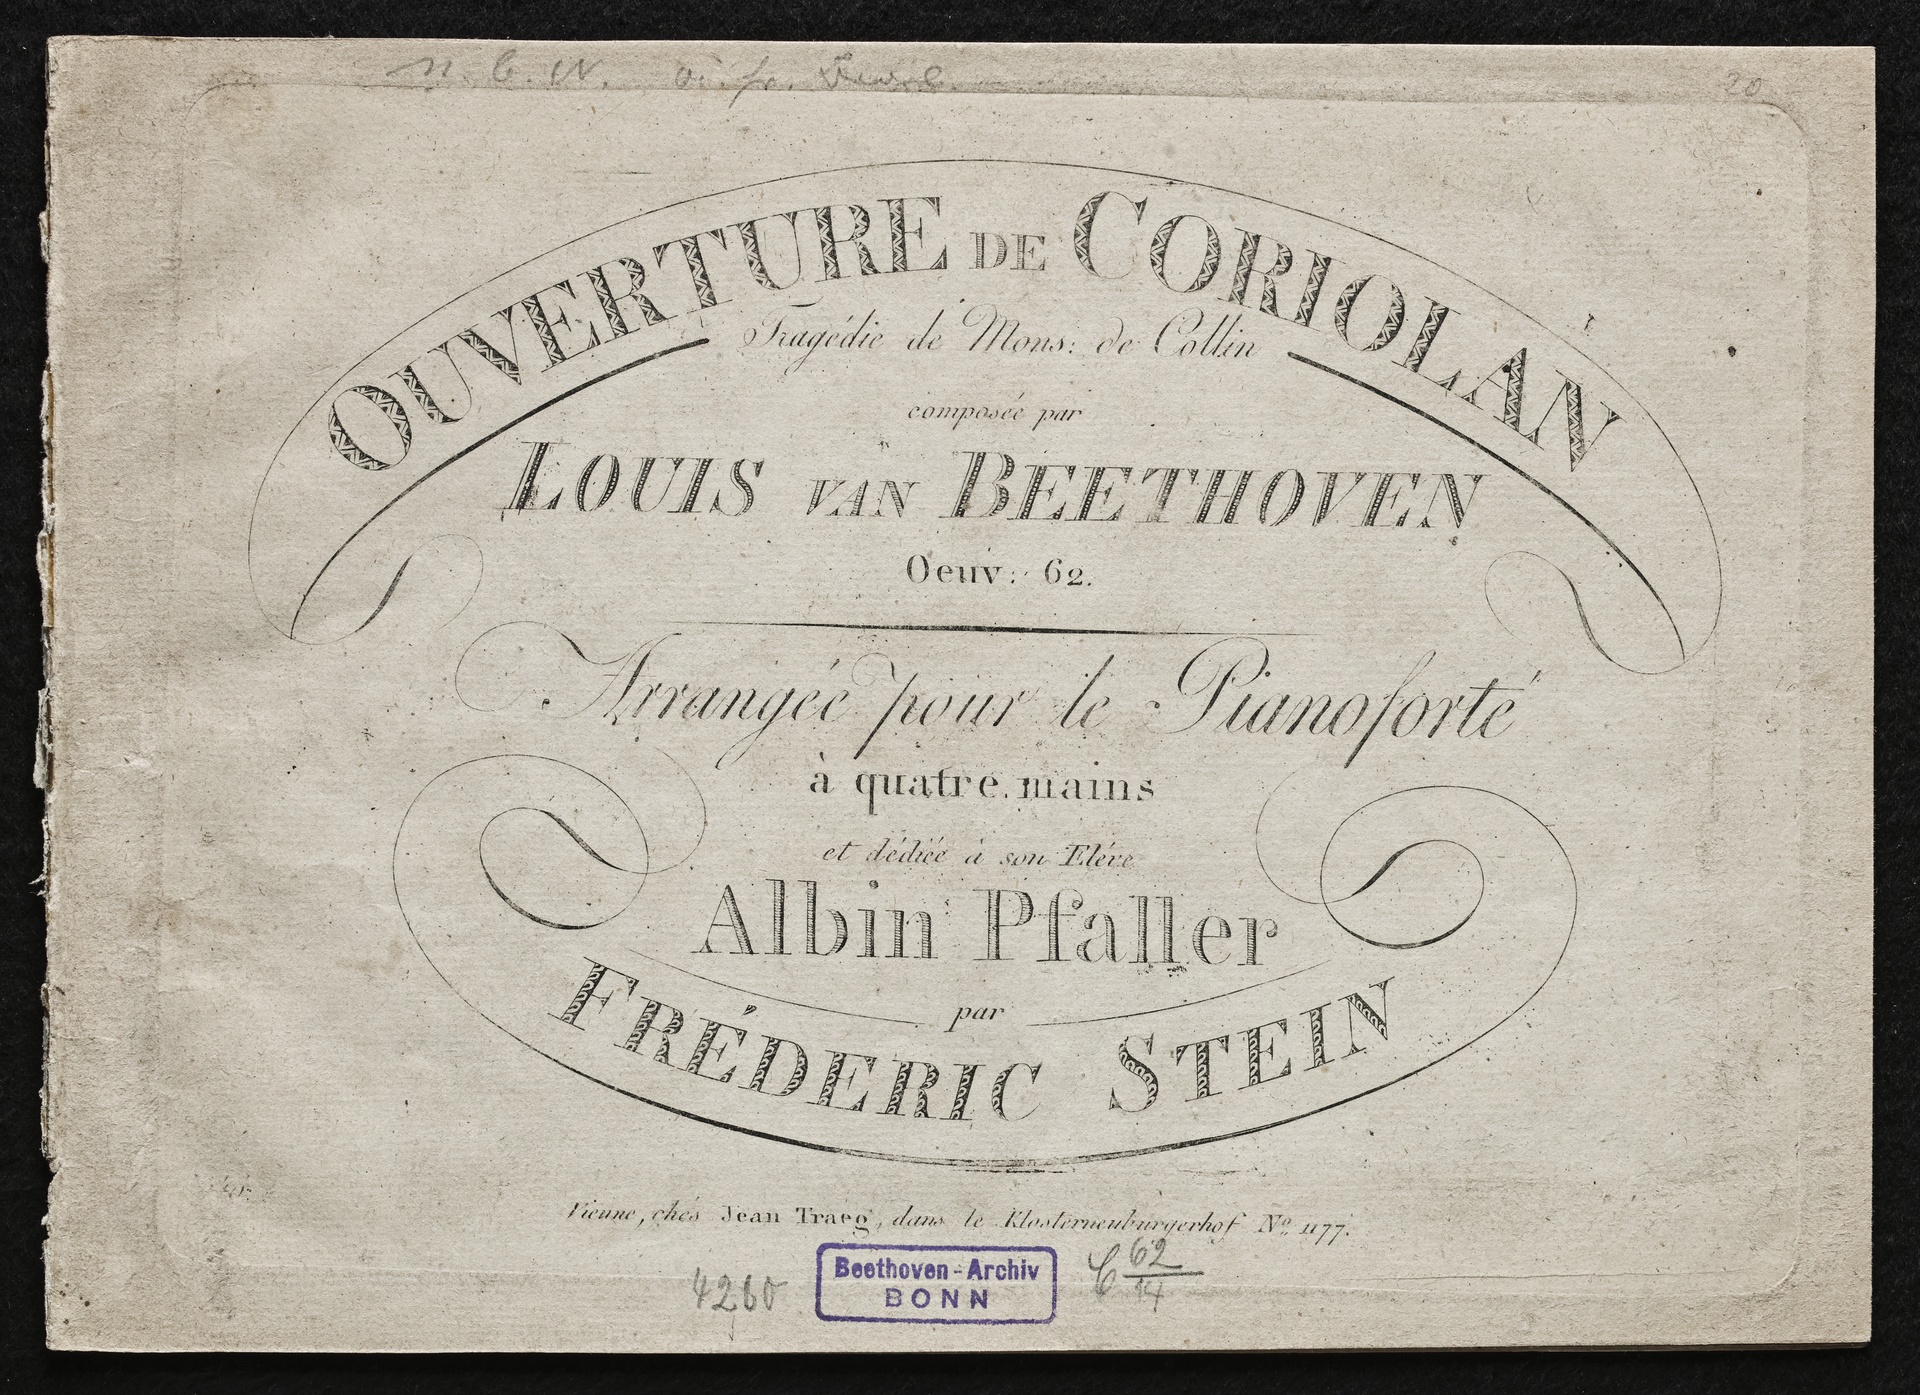 OUVERTURE DE CORIOLAN
Tragédie de Mons: de Collin
composée par
LOUIS VAN BEETHOVEN
Oeuv: 62.
Arrangée pour le Pianoforté
à quatre mains
et dédiée à son Eléve
Albin Pfaller
par
FRÉDERIC STEIN
Vienne, chés Jean Traeg, dans le Klosterneuburgerhof No. 1177.
4260
Beethoven-Archiv
BONN
C 62
14